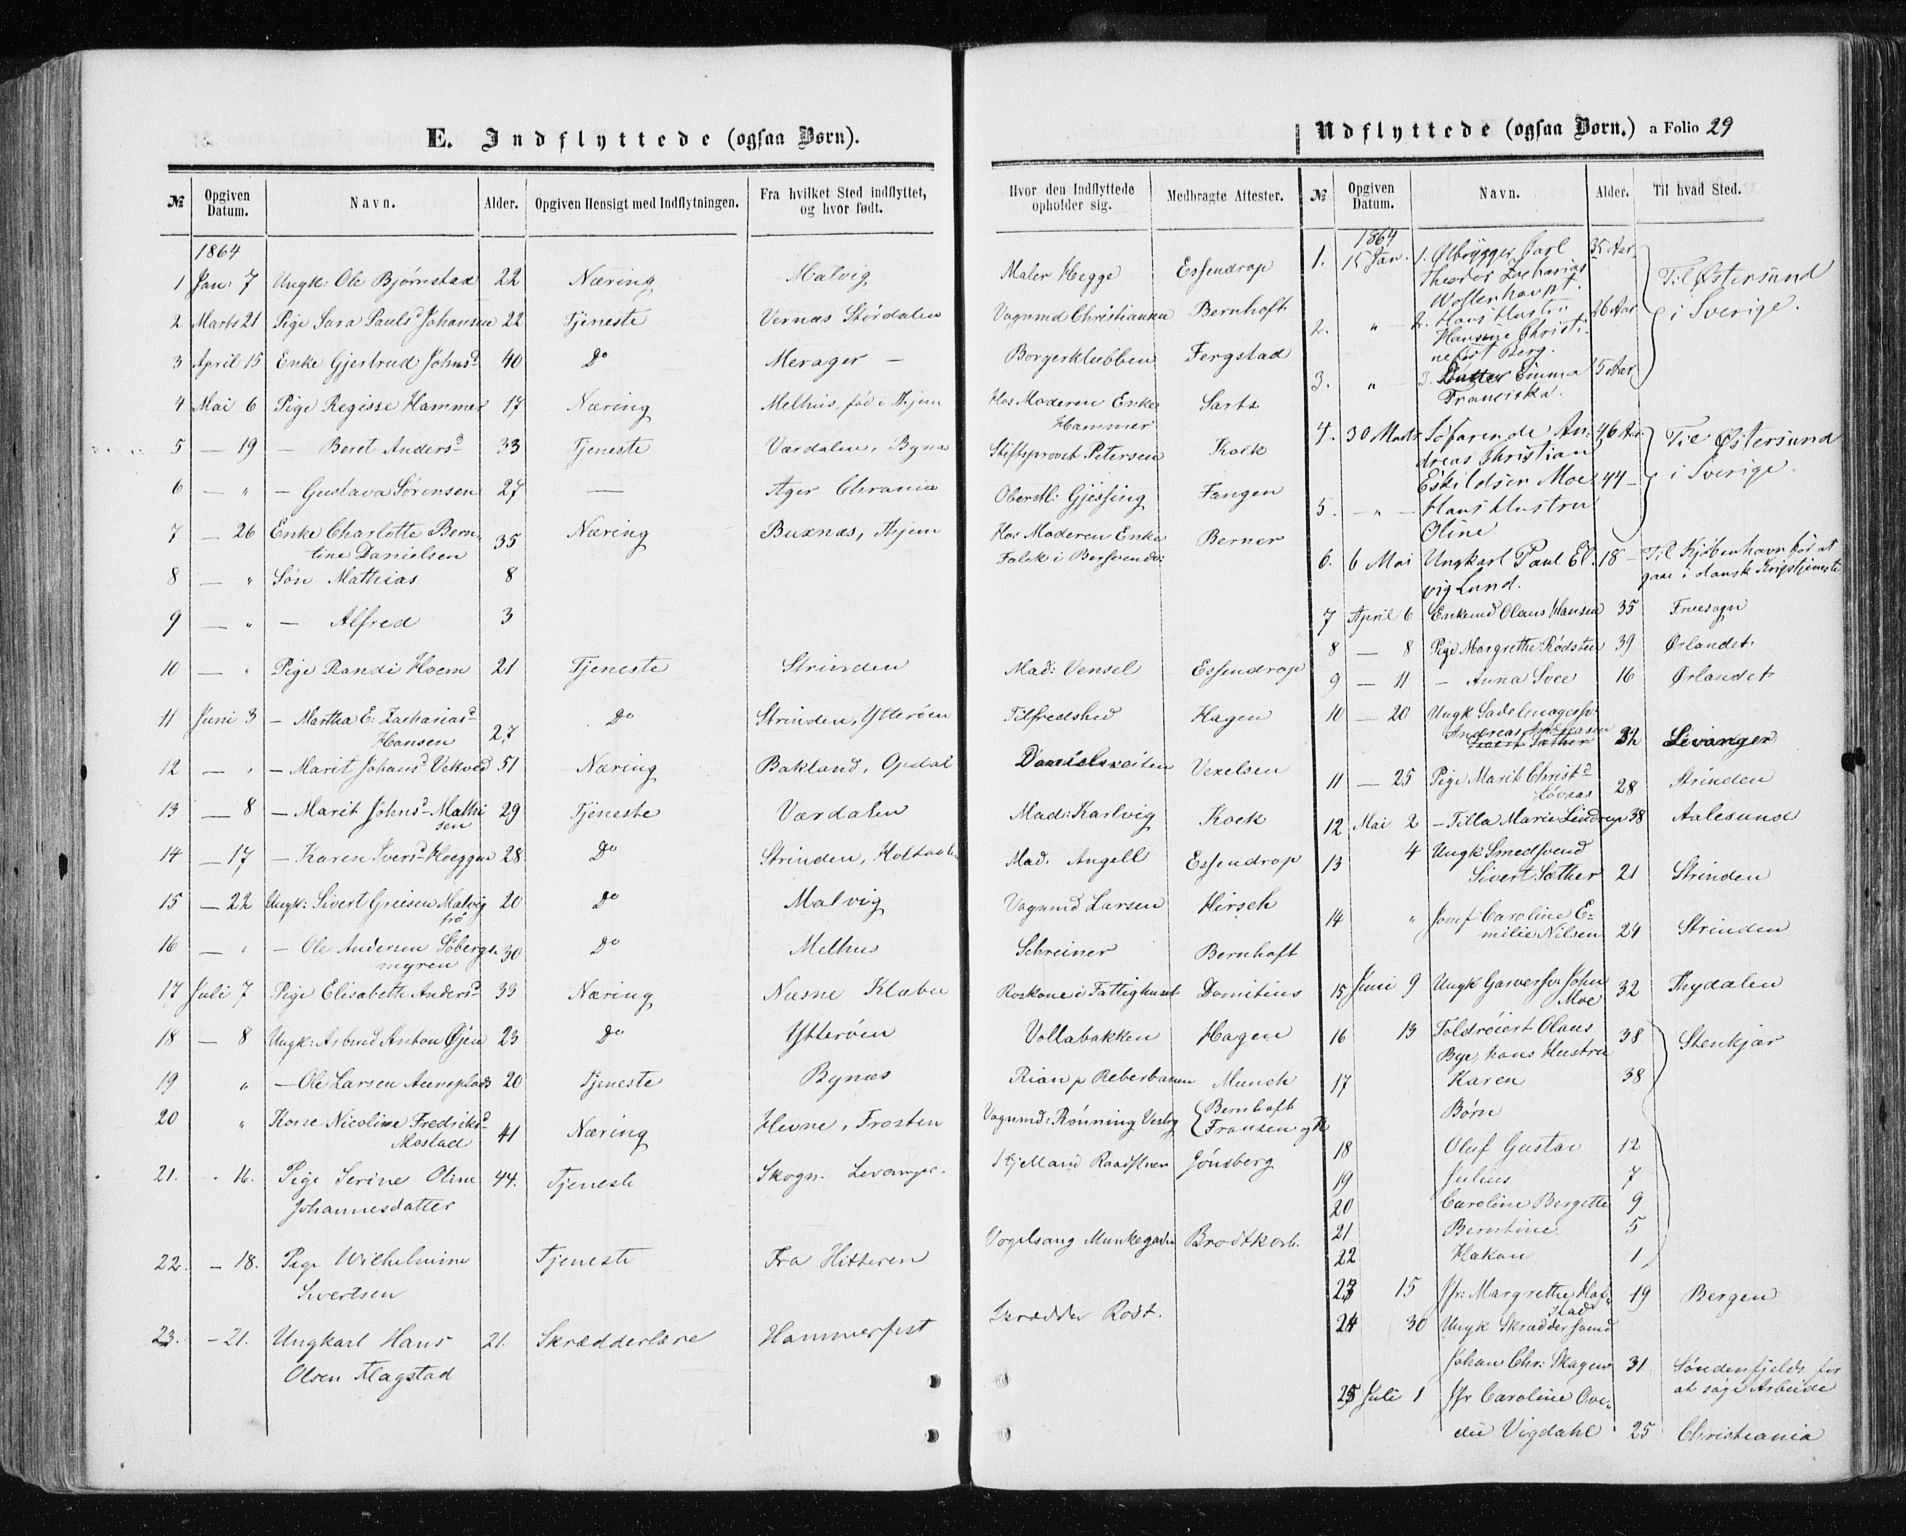 E. Indflyttede (ogsaa Børn).
№ Opgiven Datum. Navn. Alder. Opgiven Hensigt med Indflytningen. Fra hvilket Sted indflyttet, og hvor født. Hvor den Indflyttede opholder sig. Medbragte Attester.
1864
1 Jan: 7 Ungk: Ole Bjørnstad 22 Næring Malvig Maler Hegge Essendrop
2 Marts 21 Pige Sara Pauls^d Johansen 22 Tjeneste Vernæs Størdalen Vognmd Christiansen Bernhoft
3 April 15 Enke Gjertrud Johns^d 40 D^o Merager — Borgerklubben Fergstad
4 Mai 6 Pige Regisse Hammer 17 Næring Melhus, fød i Thjem Hos Moderen Enke Sartz
Hammer
5 — 19 — Beret Anders^d 33 Tjeneste Værdalen, Bynæs Stiftsprovst Petersen Kock
6 — " — Gustava Sørensen 27 — Ager Chrania Oberstl: Gjessing Fangen
7 — 26 Enke Charlotte Bern- 35 Næring Buxnæs, Thjem Hos Moderen Enke Berner
tine Danielsen Falck i Bersvendv:
8 — " Søn Mathias 8
9 — " — Alfred 3
10 — " Pige Randi Hoem 21 Tjeneste Strinden Mad: Vensel Essendrop
11 Juni 3 — Martha E. Zacharias^d 27 D^o Strinden, Ytterøen Tilfredshed Hagen
Hansen
12 — " — Marit Johans^d Vekved 51 Næring Bakland, Opdal Danielsveiten Vexelsen
13 — 8 — Marit Johns^d Mathi 29 Tjeneste Værdalen Mad: Karlvig Kock
sen
14 — 17 — Karen Ivers^d Hoeggen 28 D^o Strinden, Holtaalen Mad. Angell Essendrop
15 — 22 Ungk: Sivert Griesen Malvig 20 D^o Malvig Vognmd Larsen Hirsch
16 — " — Ole Andersen Søbergs- 30 D^o Melhus Schreiner Bernhoft
myren
17 Juli 7 Pige Elisabeth Anders^d 33 Næring Næsne Klæbu Roskone i Fattighuset Domitius
18 — 8 Ungk: Arbmd Anton Øjen 23 D^o Ytterøen Vollabakken Hagen
19 " — Ole Larsen Auneplads 20 Tjeneste Bynæs Rian p Reberbanen Munch
20 " Kone Nicoline Fredriks^d 41 Næring Hevne, Frosten Vognmd: Rønning Vestbg Bernhoft
Mostad Fransen
21. " 16. Pige Serine Oline 44. Tjeneste Skogn. Levanger. Kjelland Raadstuen Jønsberg
Johannesdatter
22. — 18. Pige Wilhelmine Tjeneste Fra Hitteren Vogelsang Munkegaden Brodtkorb.
Sivertsen
23. — 21. Ungkarl Hans 21. Skrædderlære Hammerfest Skrædder Rodt.
Olsen Flagstad
Udflyttede (ogsaa Børn.) a Folio 29
№ Opgiven Datum. Navn. Alder. Til hvad Sted.
1864
1. 15 Jan. 1. Ølbrygger Carl 35 Aar Til Østersund
Theodor Zacharias i Sverige.
Wollerhaupt.
2. " 2. Hans Hustru 26 Aar
Hansine Christi-
ne fød Berg.
3. " 3. Datter Emma 5 Aar
Franciska.
4. 30 Marts Søfarende An- 46 Aar Til Østersund
dreas Christian i Sverige.
Eskildsen Moe
5. — " — Hans Hustru 44 —
Oline
6. 6 Mai Ungkarl Paul El- 18 — Til Kjøbenhavn for at
vig Lund. gaae i dansk Krigstjeneste
7 April 6 Enkemd Olaus Hansen 35 Fruesogn
8 — 8 Pige Margrethe Rødsten 39 Ørlandet
9 — 11 — Anna Svee 16 Ørlandet
10 — 20 Ungk Sadelmagersv. 32 Levanger
Andreas
11 — 25 Pige Marit Christ^d 28 Strinden
Løvaas
12 Mai 2 — Tilla Marie Lindrup 38 Aalesund
13 4 Ungk Smedsvend
Sivert Sæther 21 Strinden
14 " Jomf: Caroline E-
milie Nilsen 24 Strinden
15 Juni 9 Ungk Garversv: John 32 Thydalen
Moe
16 13 Toldroiert Olaus 38 Stenkjær
Bye, hans Hustru
17 Karen 38
Børn
18 Oluf Gustav 12
19 Julius 7
20 Caroline Bergette 9
21 Berntine 5
22 Hakon 1
23 15 Jfr: Margrethe Haf- 19 Bergen
stad
24 30 Ungk Skræddersvend
Johan Chr: Skagen 31 Søndenfjelds for
at søge Arbeide
25 Juli 1 Jfr Caroline Ove-
die Vigdahl 25 Christiania